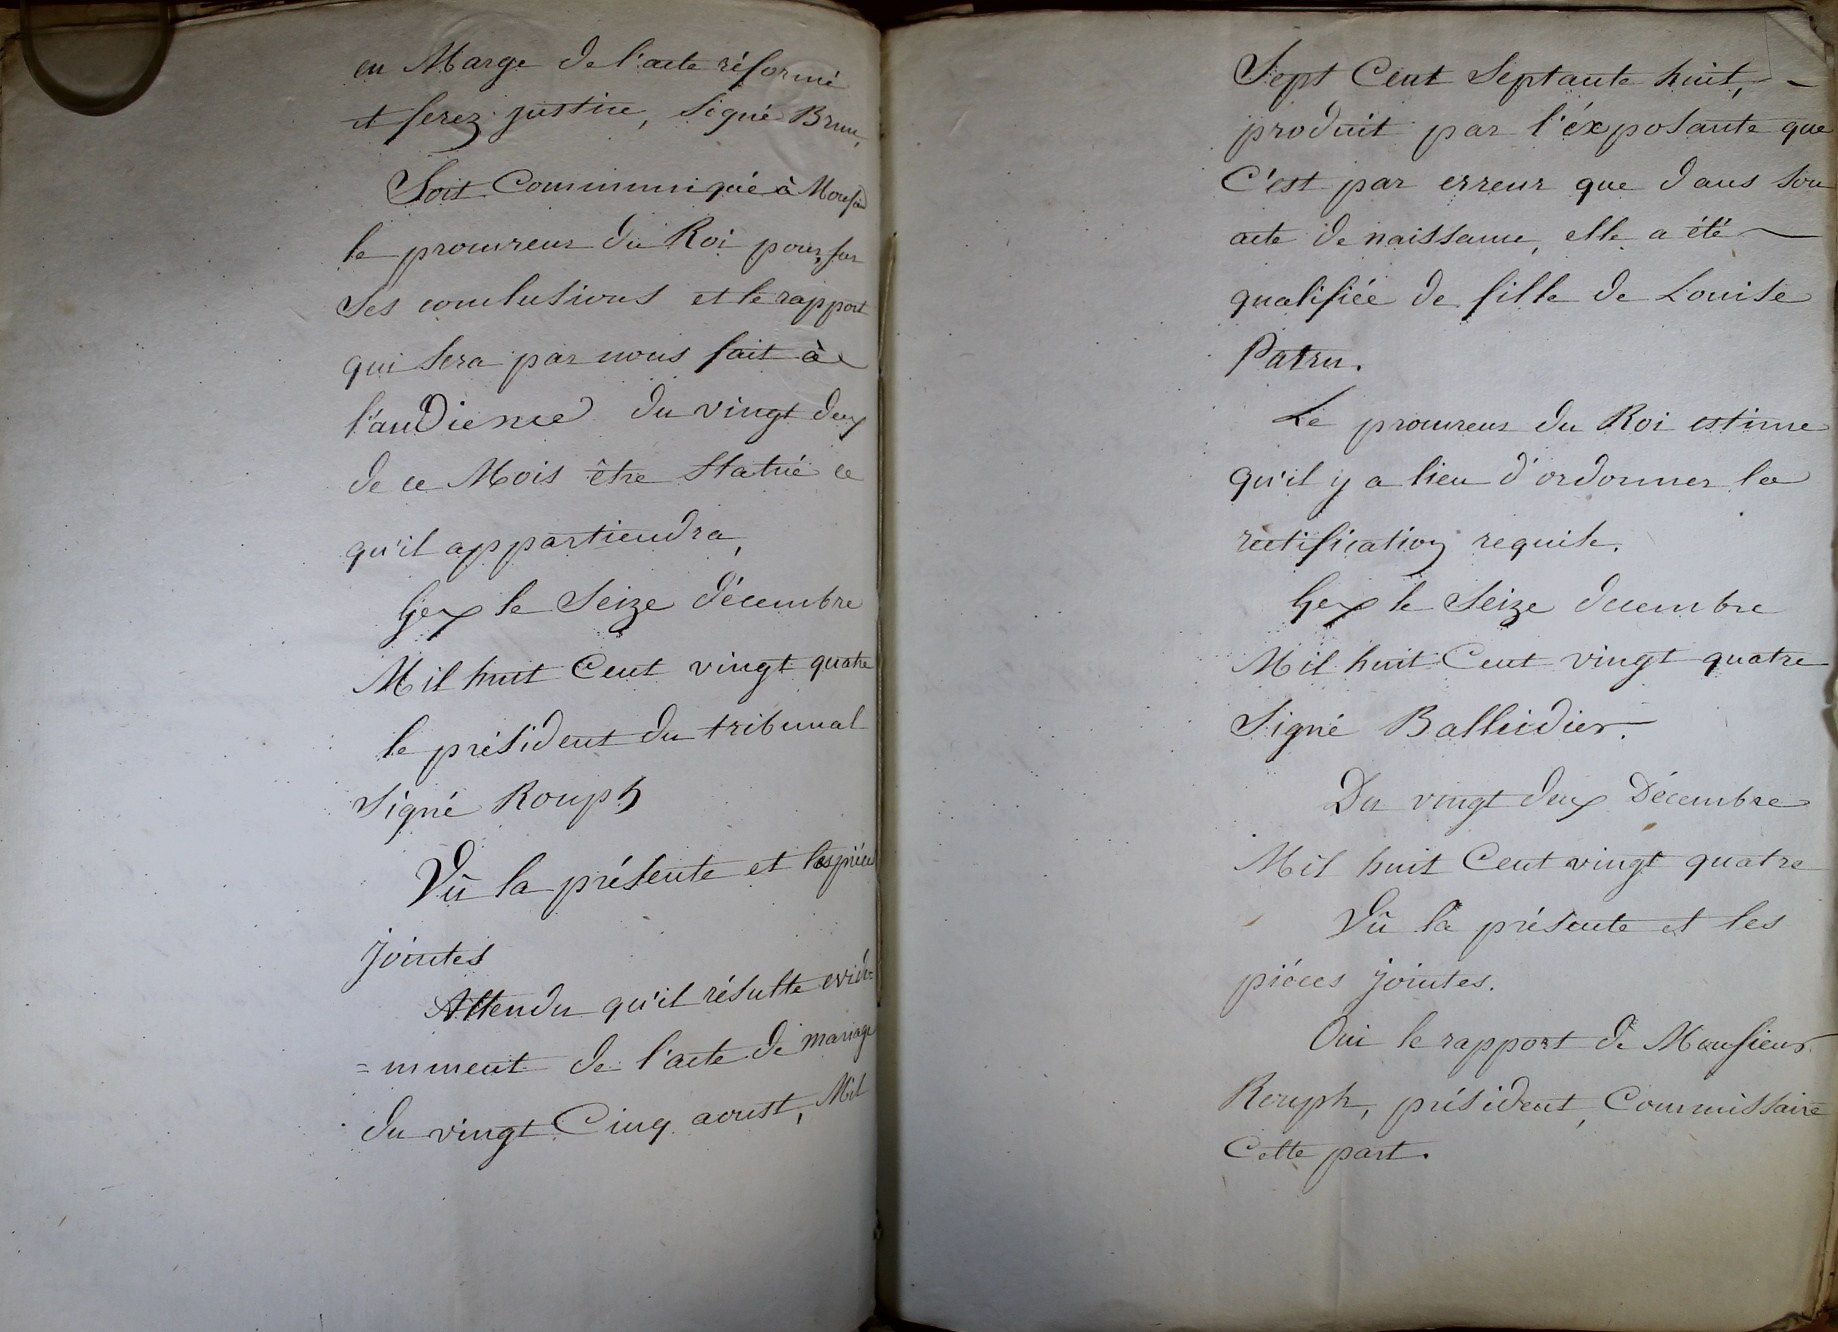 en Marge de l'acte réformé
et ferez justice, signé Brun,
Soit Communiqué à Monsieur
le procureur du Roi pour, sur
ses conclusions et le rapport
qui sera par nous fait à
l'audience du vingt deux
de ce Mois être statué ce
qu'il appartiendra,
Gex le Seize décembre
Mil huit Cent vingt quatre
le président du tribunal
signé Rouph
Vû la présente et les pièces
jointes
Attendu qu'il résulte evide
=mment de l'acte de mariage
du vingt Cinq aoust, Mil
Sept Cent Septante huit,
produit par l'éxposante que
C'est par erreur que dans son
acte de naissance, elle a été
qualifiée de fille de Louise
Patru.
Le procureur du Roi estime
qu'il y a lieu d'ordonner la
rectification requise.
Gex le Seize decembre
Mil huit Cent vingt quatre
Signé Balleidier.
Du vingt deux Décembre
Mil huit Cent vingt quatre
Vû la présente et les
piéces jointes.
Oui le rapport de Monsieur
Rouph, président, Commissaire
Cette part.